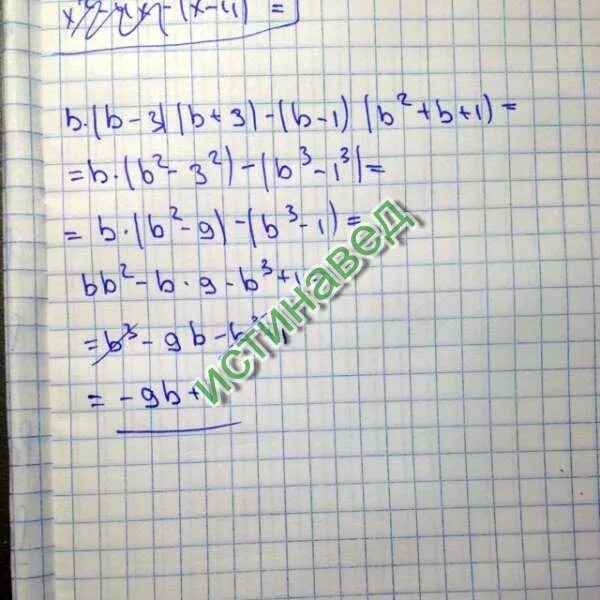 - (x-4) =
b·(b-3)(b+3)-(b-1)(b²+b+1)=
=b·(b²-3²)-(b³-1³)=
=b·(b²-9)-(b³-1)=
bb²-b·9-b³+1
=b³-9b-b³
=-9b+
истинавед